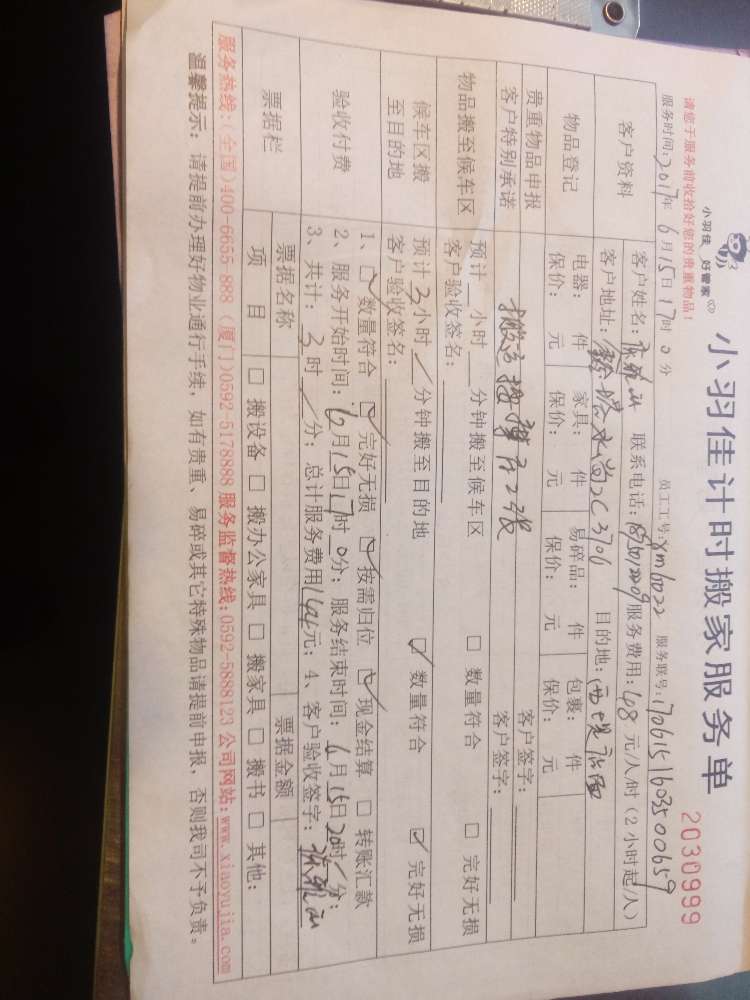 小羽佳 好管家
小羽佳计时搬家服务单
2030999
请您于服务前收拾好您的贵重物品！
服务时间：2017年6月15日17时0分 员工工号：xm6022 服务联号：1706151603500659
客户资料
客户姓名： 联系电话： 服务费用：68元/人/时（2小时起/人）
客户地址： 水岸2C3706 目的地：西堤
物品登记
电器： 件 家具： 件 易碎品： 件 包裹： 件
保价： 元 保价： 元 保价： 元 保价： 元
贵重物品申报 客户签字：
客户特别承诺 搬运 客户签字：
物品搬至候车区
预计 小时 分钟搬至候车区 □ 数量符合 □ 完好无损
客户验收签名：
候车区搬至目的地
预计3小时/分钟搬至目的地 ☑ 数量符合 ☑ 完好无损
客户验收签名：
验收付费
1、☑ 数量符合 ☑ 完好无损 ☑ 按需归位 ☑ 现金结算 □ 转账汇款
2、服务开始时间：6月15日17时0分；服务结束时间：6月15日20时/分；
3、共计：3时/分；总计服务费用 元；4、客户验收签字：
票据栏
票据名称 票据金额
项 目 □ 搬设备 □ 搬办公家具 □ 搬家具 □ 搬书 □ 其他：
服务热线：（全国）400-6655 888（厦门）0592-5178888 服务监督热线：0592-5888123 公司网站：www.xiaoyujia.com
温馨提示：请提前办理好物业通行手续，如有贵重、易碎或其它特殊物品请提前申报，否则我司不予负责。